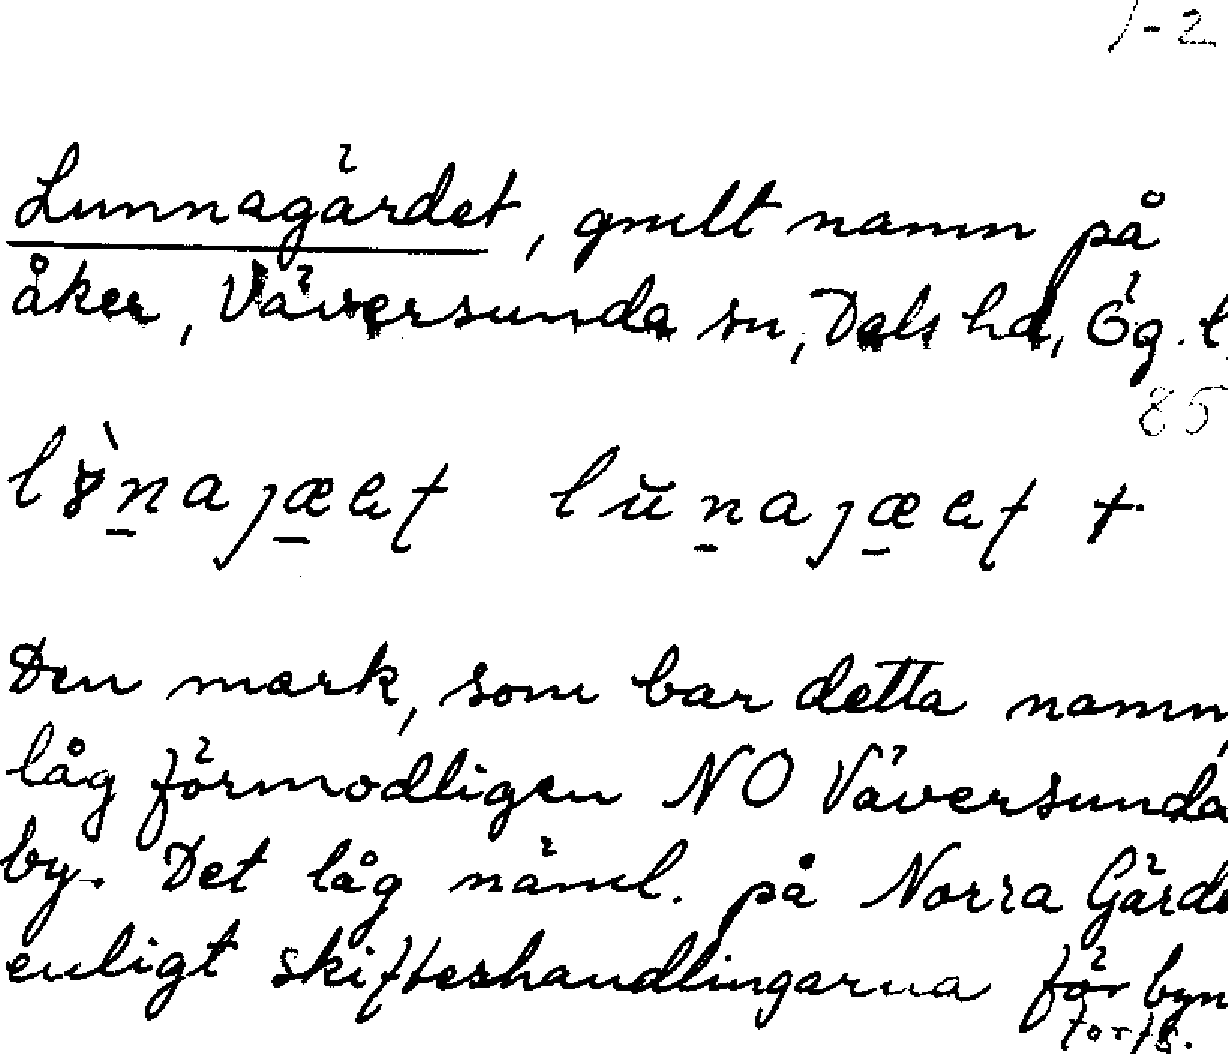 1-2
Lunnagärdet, gmlt namn på
åker, Väversunda sn, Dals hd, Ög. l.
85
Den mark, som bar detta namn,
låg förmodligen NO Väversunda
by. Det låg näml. på Norra Gärde
enligt skifteshandlingarna för byn
forts.